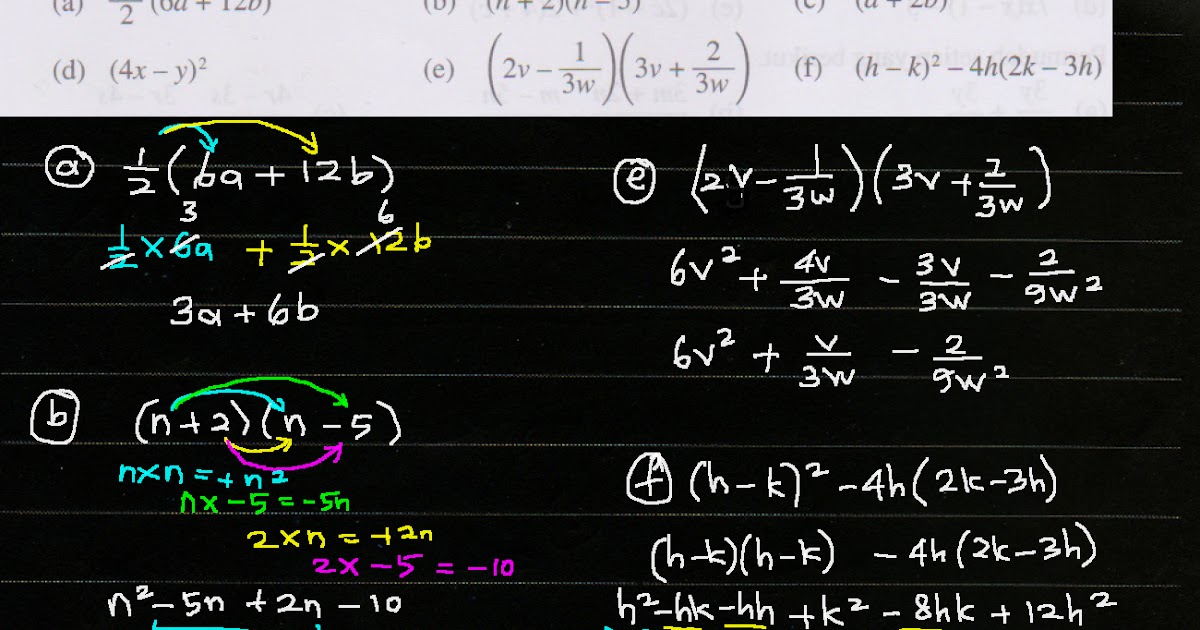 (a) 1/2 (6a + 12b) (b) (n + 2)(n − 5) (c) (a + 2b)²
(d) (4x – y)² (e) (2v – 1/3w)(3v + 2/3w) (f) (h – k)² – 4h(2k – 3h)
(a) 1/2 (6a + 12b)
3 6
1/2 × 6a + 1/2 × 12b
3a + 6b
(b) (n + 2)(n – 5)
n×n = +n²
n× –5 = –5n
2×n = +2n
2× –5 = –10
n² – 5n + 2n – 10
(e) (2v – 1/3w)(3v + 2/3w)
6v² + 4v/3w – 3v/3w – 2/9w²
6v² + v/3w – 2/9w²
(f) (h – k)² – 4h(2k – 3h)
(h–k)(h–k) – 4h(2k–3h)
h² –hk –hh + k² – 8hk + 12h²